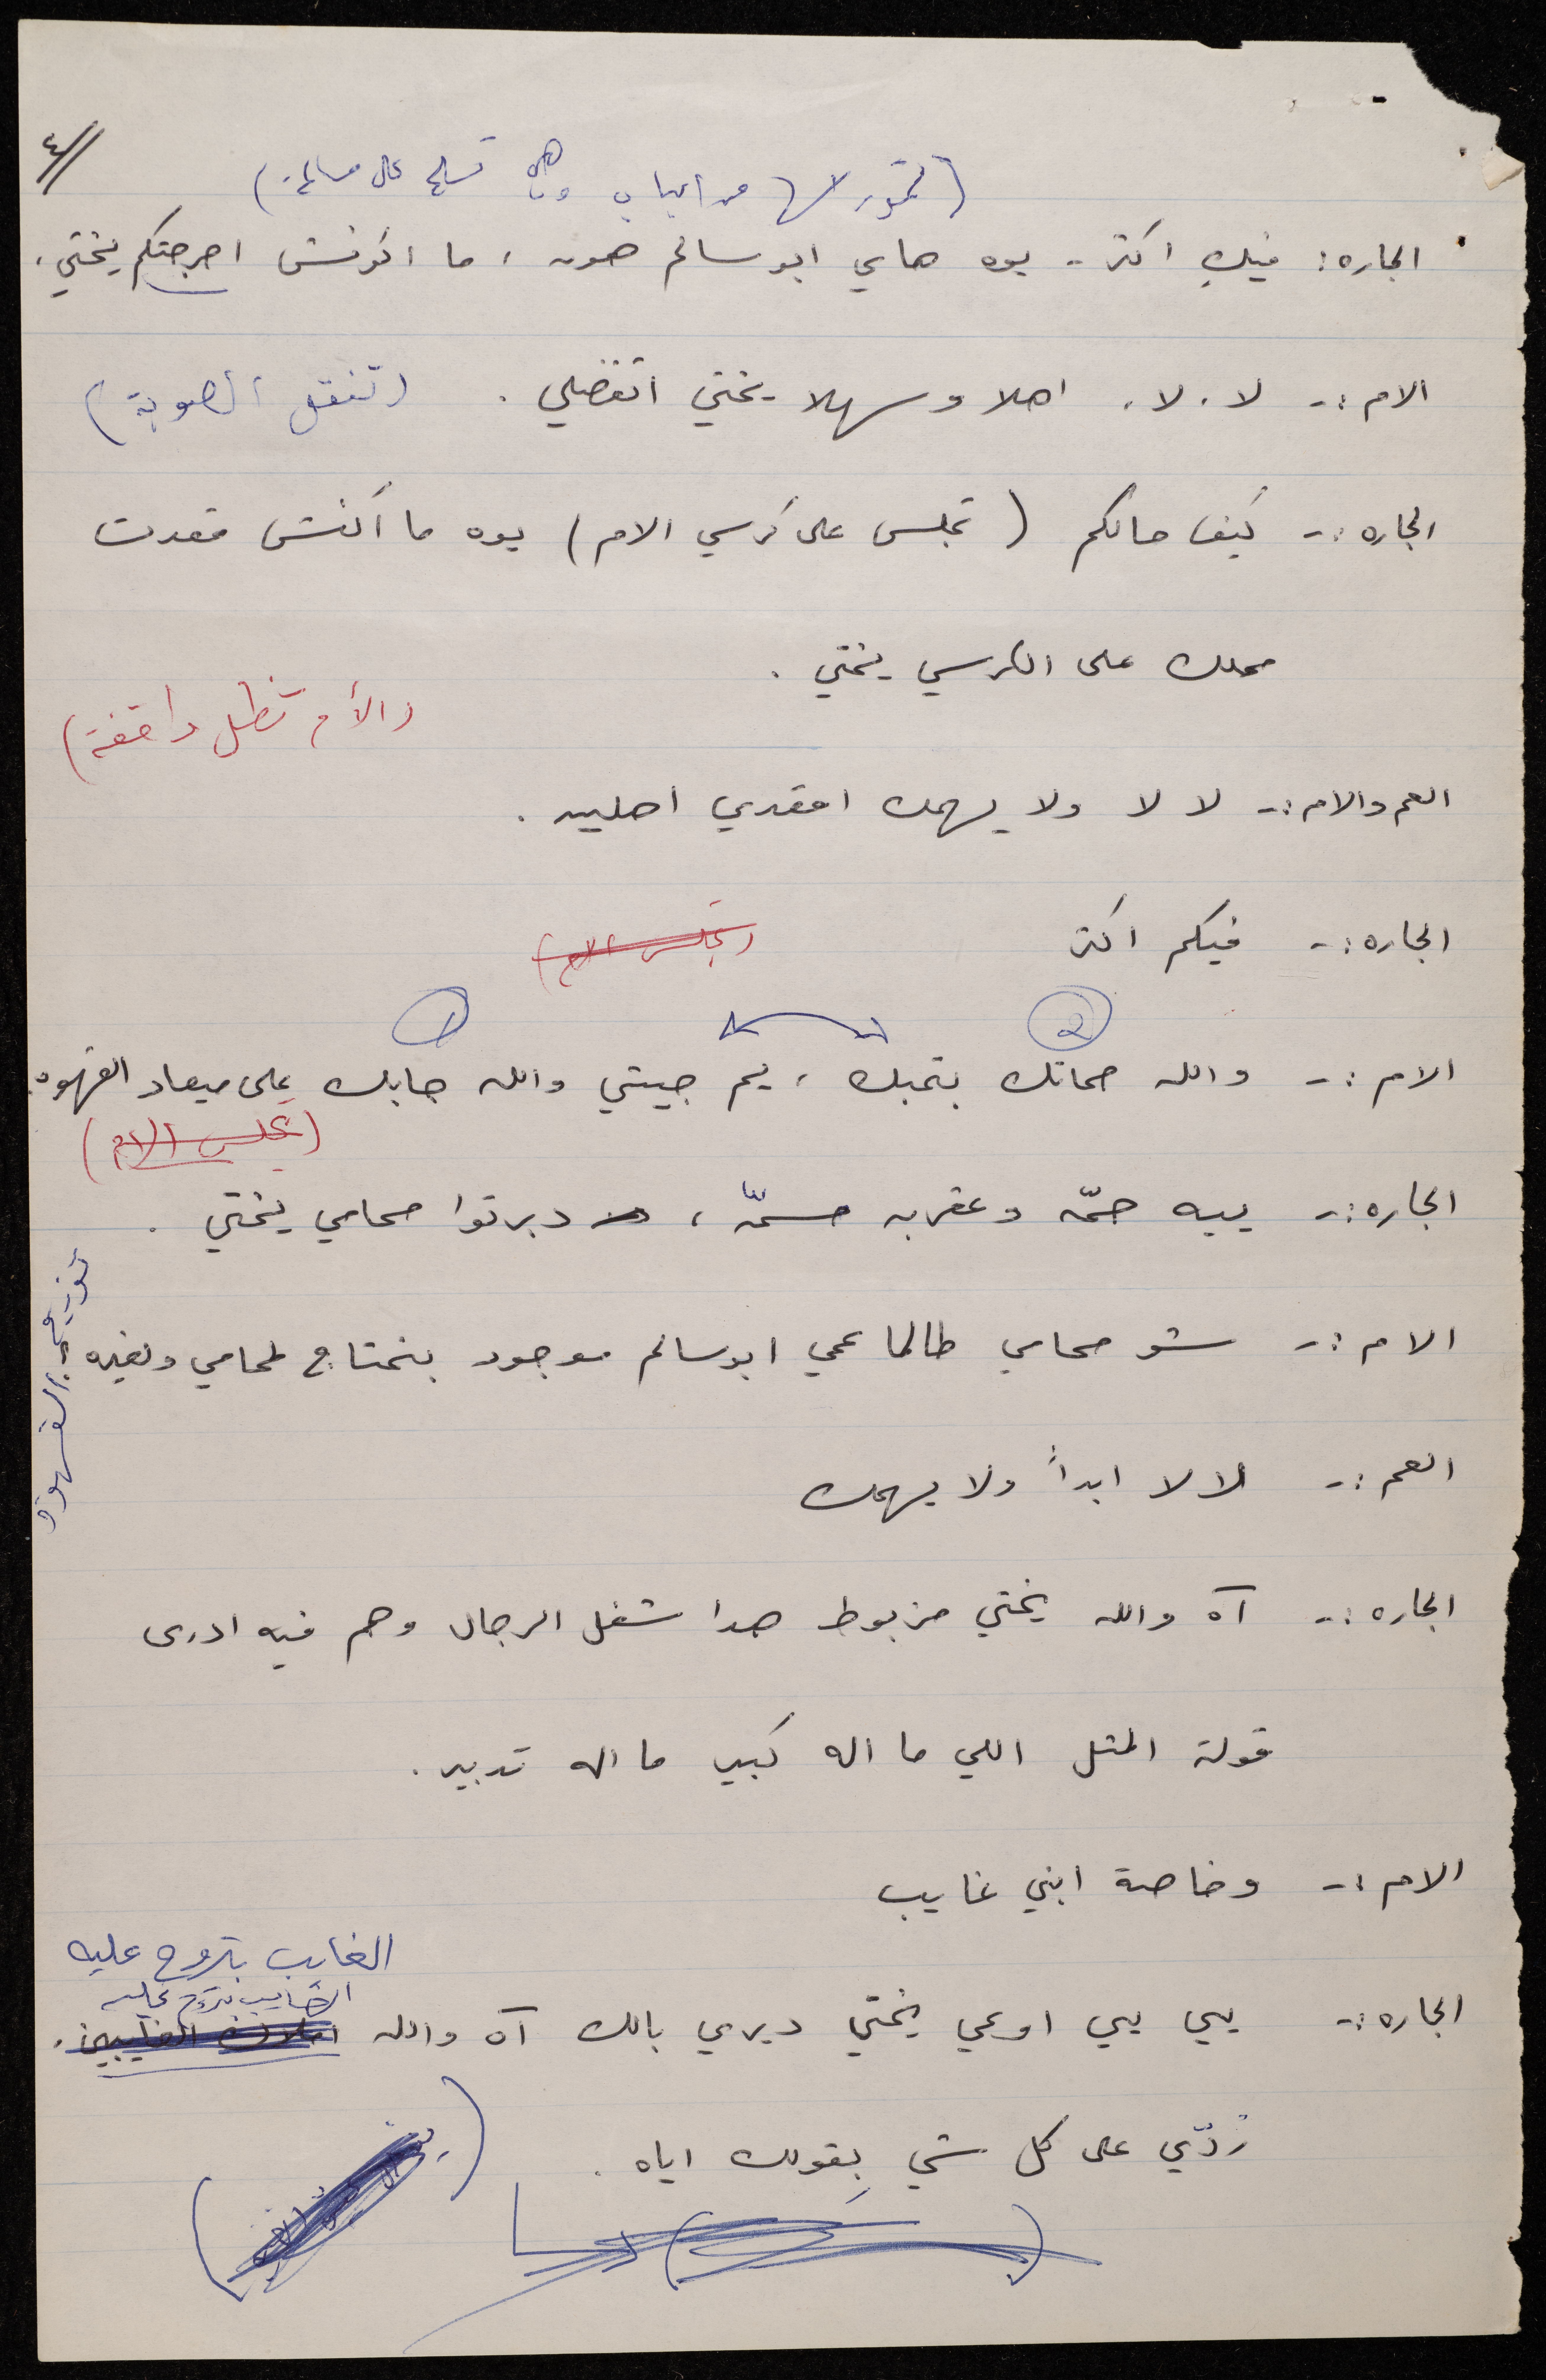 ٤//
من الباب وهي تسلم على سالم)
الجاره: فيكِ اكتر - يوه هاي ابو سالم هون ، ما اكونش احرجتكم يختي ،
الام :- لا . لا . اهلا وسهلا يختي اتفضلي . (تنقل الصوبة)
الجاره :- كيف حالكم ( تجلس على كرسي الام ) يوه ما أكنش قعدت
محلك على الكرسي يختي .
(الأم تظل واقفة)
العم والام :- لا لا ولا يهمك اقعدي اصليه .
الجاره :- فيكم اكتر (تجلس الام)
2 1
الام :- والله حماتك بتحبك ، يم جيتي والله جابك على ميعاد القهوه .
(تجلس الام)
الجاره :- ييه حمّه وعقربه مسمّه ، دبرتوا محامي يختي .
الام :- شو محامي طالما عمي ابو سالم موجود بنحتاج لمحامي ولغيره
توزيع القهوة
العم :- لا لا ابداً ولا يهمك
الجاره :- آه والله يختي مزبوط هدا شغل الرجال وهم فيه ادرى
قولة المتل اللي ما اله كبير ما اله تدبير .
الام :- وخاصة ابني غايب
الغايب بتروح عليه
الغايب بتروح عليه
الجاره :- يي يي اوعي يختي ديري بالك آه والله
رُدّي على كل شي بِقولك اياه .